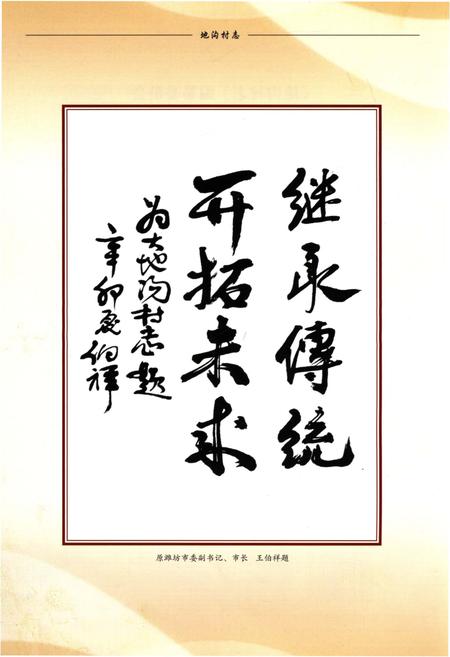 地沟村志
继承傳统
开拓未来
为大地沟村志题
辛卯夏伯祥
原潍坊市委副书记、市长 王伯祥题